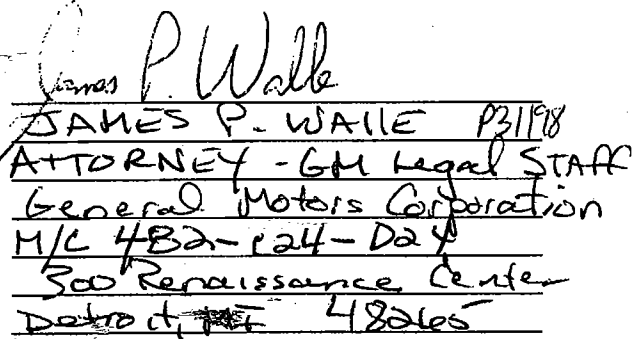 James P. Walle
JAMES P. WALLE P31198
ATTORNEY - GM Legal STAFF
General Motors Corporation
M/C 482-C24-D24
300 Renaissance Center
Detroit, MI 48265